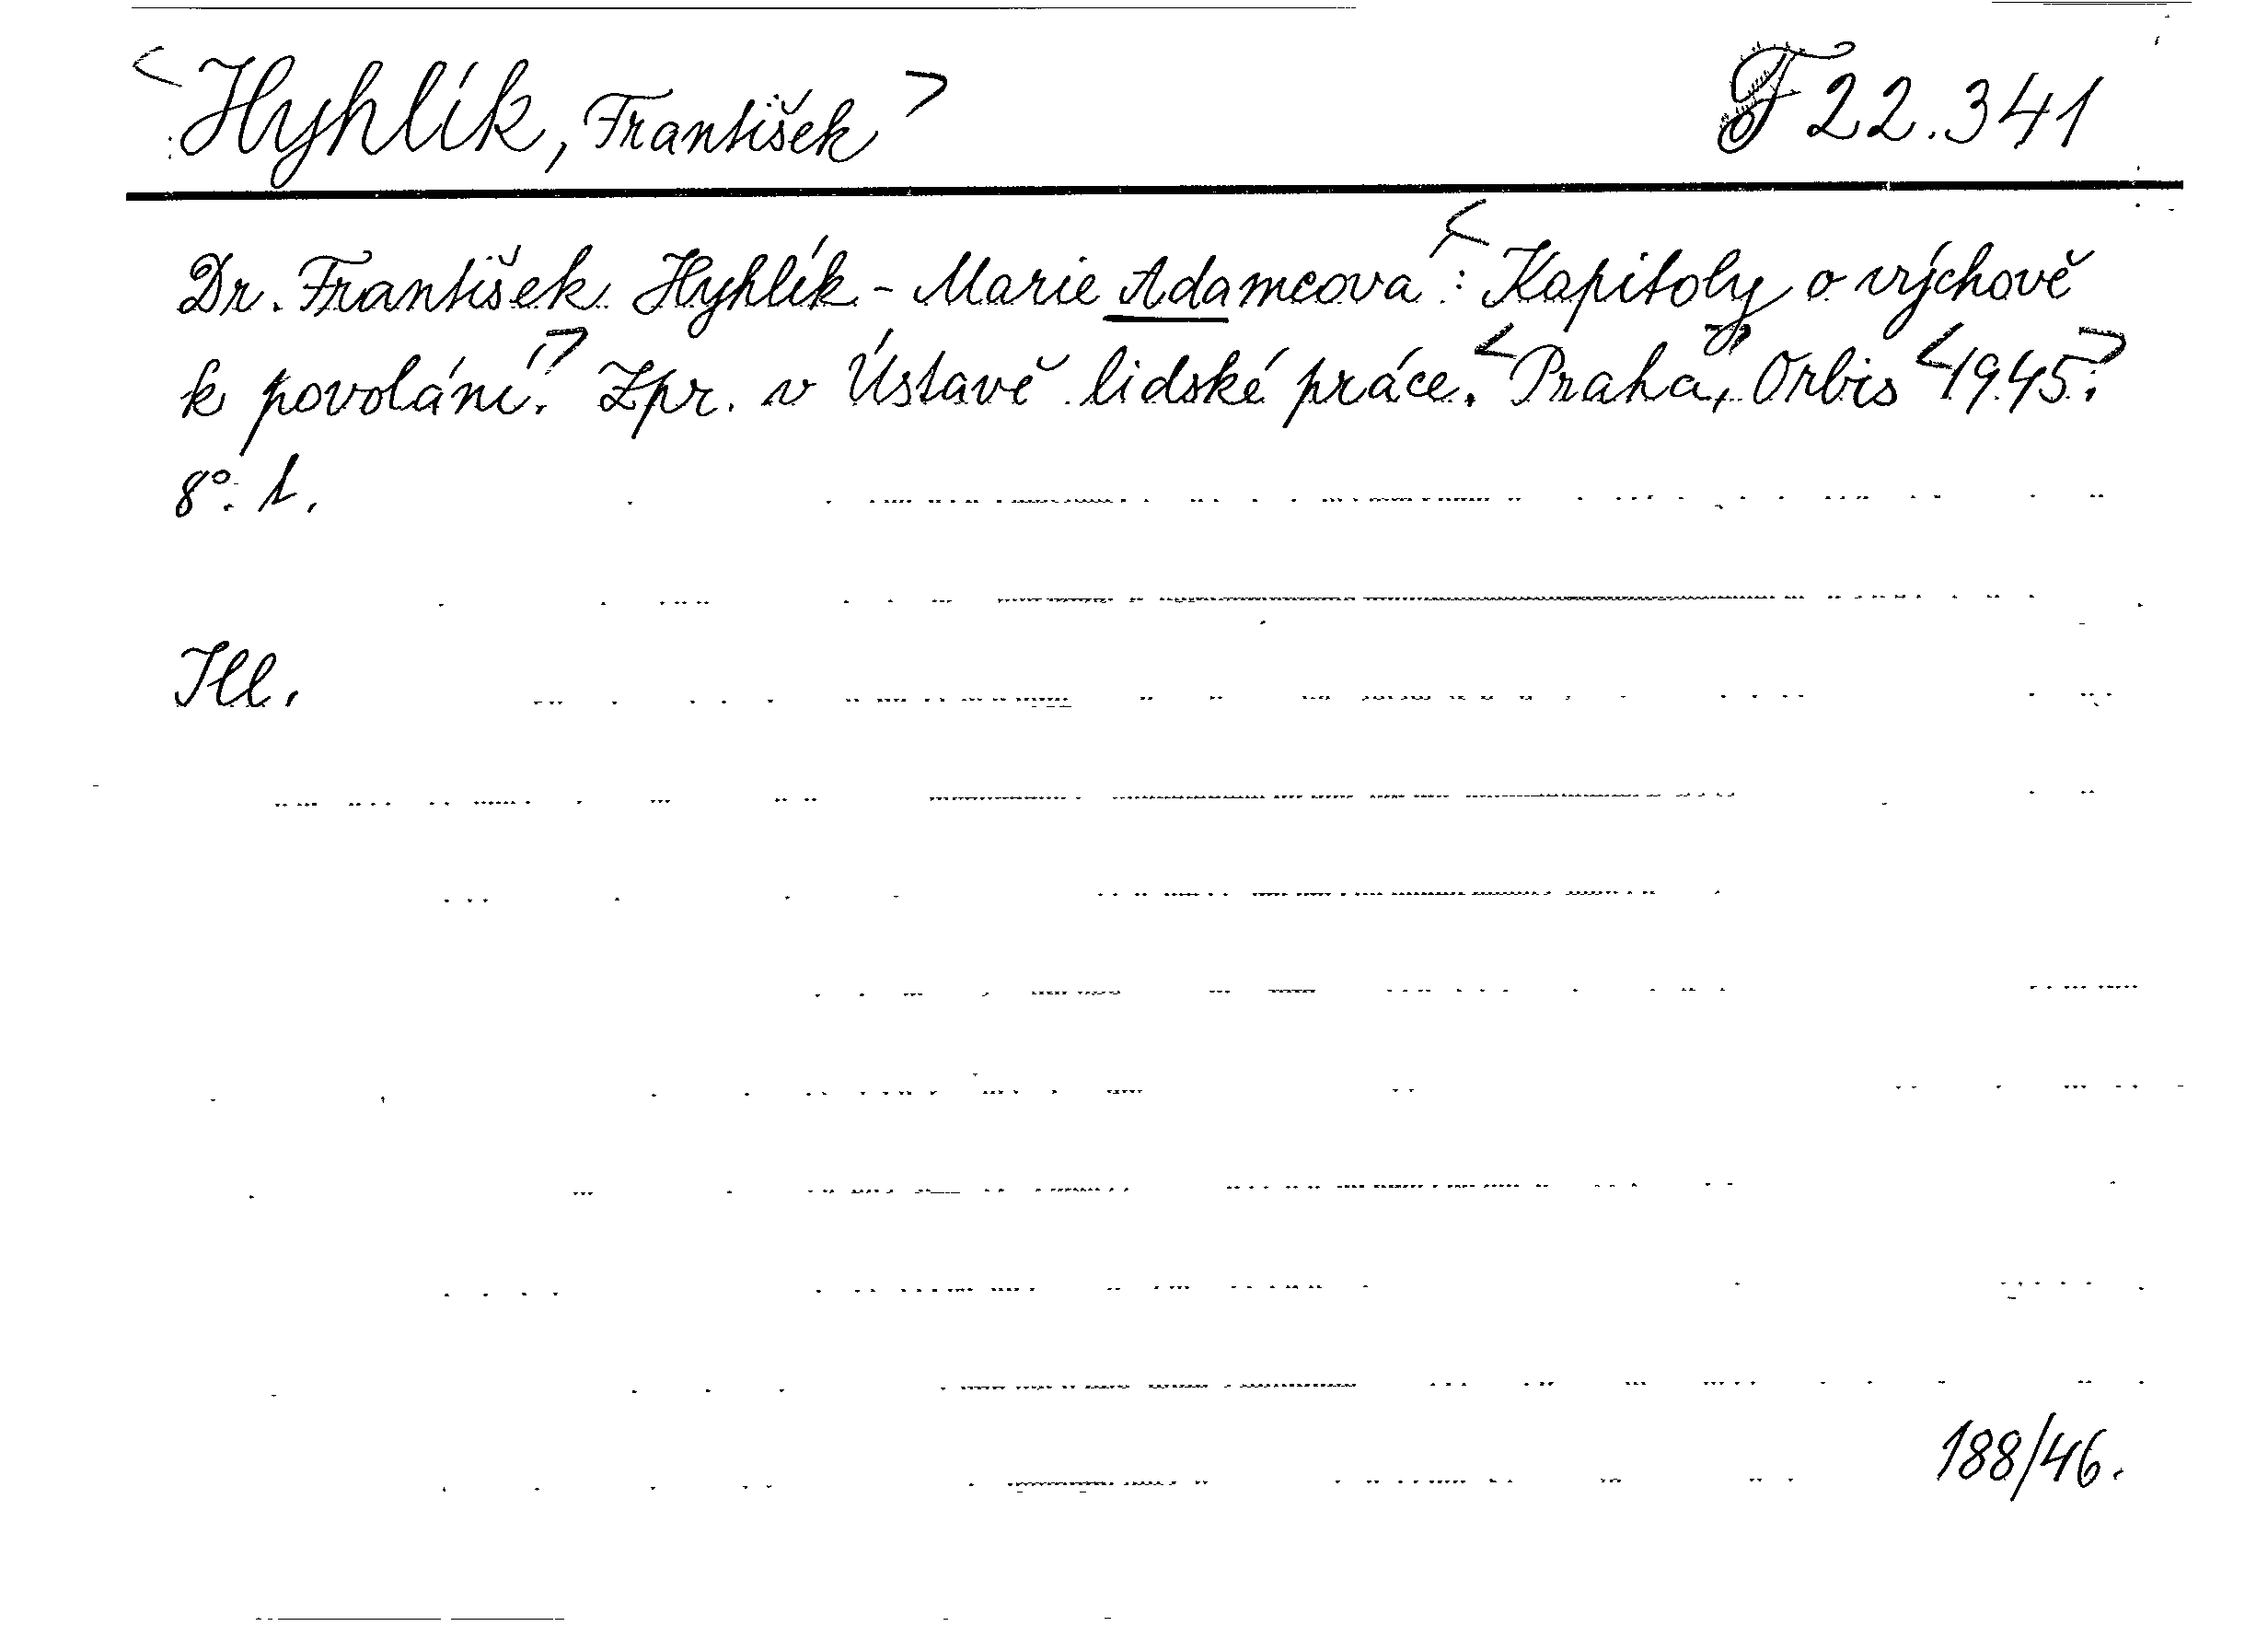 <Hyhlík, František> F 22.341
Dr. František Hyhlík - Marie Adamcová: <Kapitoly o výchově
k povolání.> Zpr. v Ústavě lidské práce. <Praha,> Orbis <1945.>
8°. 1.
Ill.
188/46.